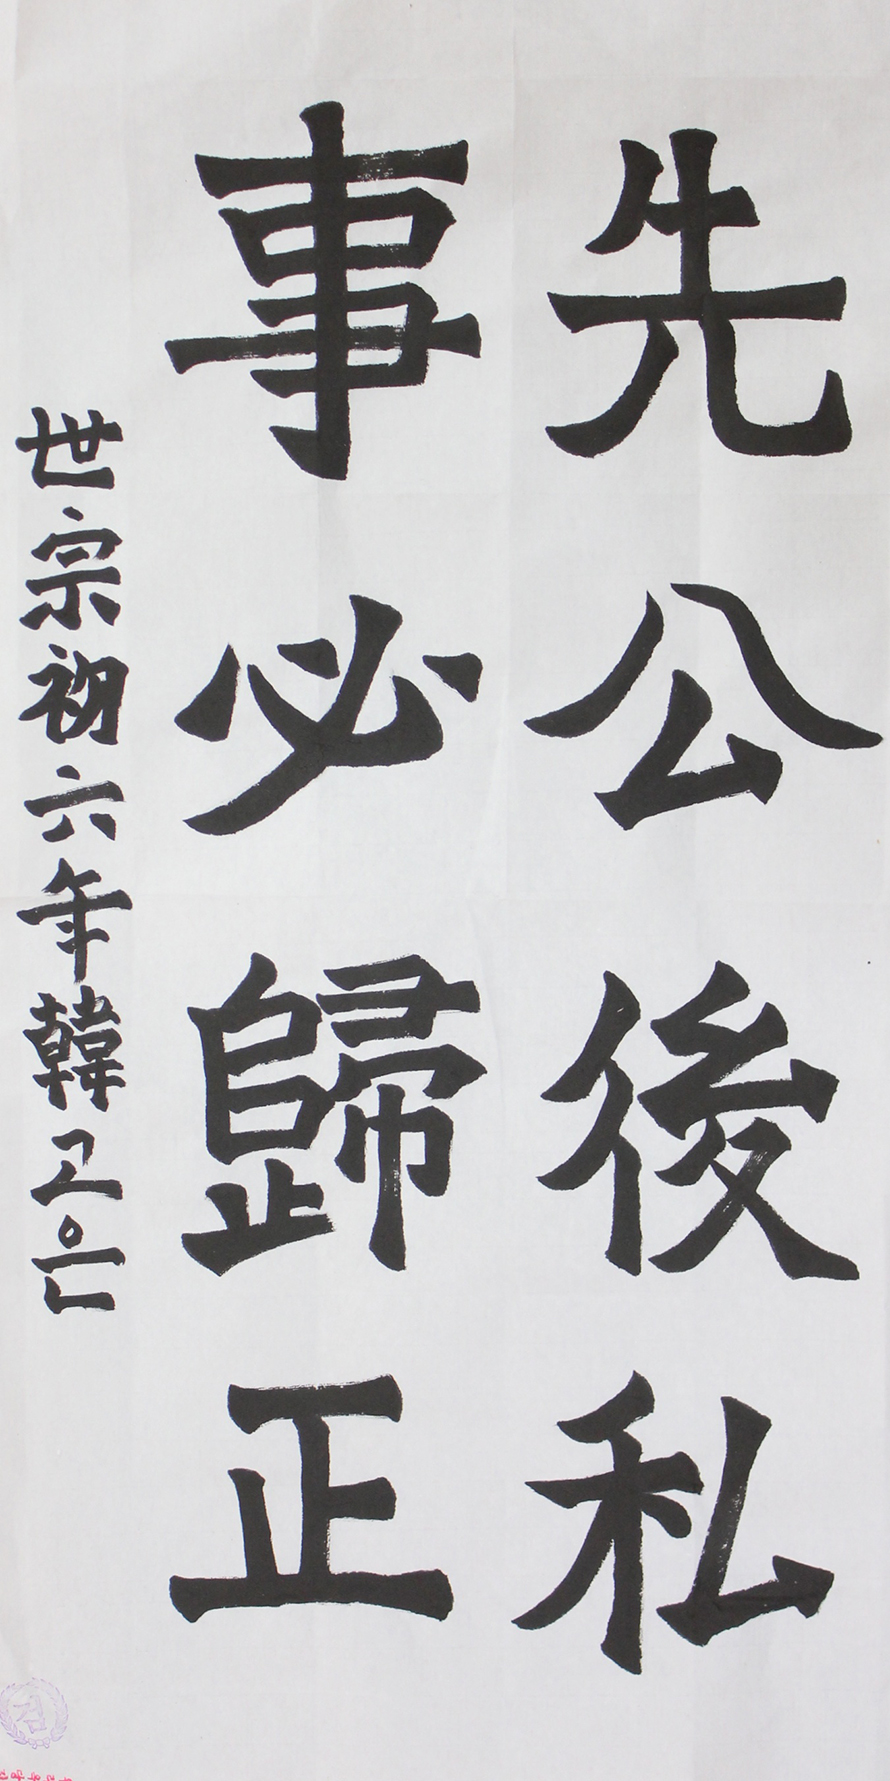 先公後私
事必歸正
世宗初六年韓고은
검